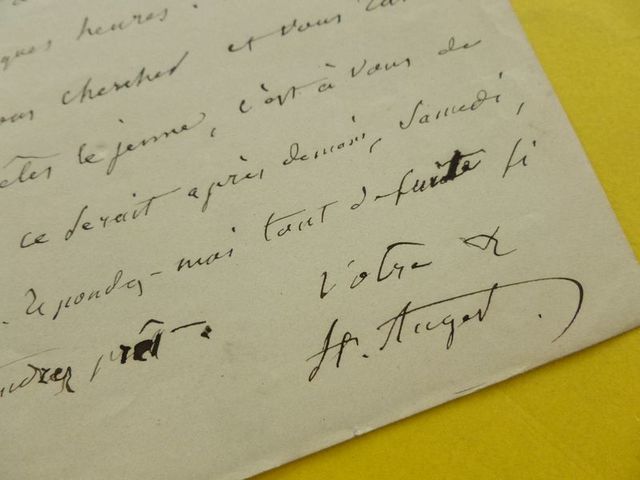 ques heures.
chercher et vous
êtes le jeune, c'est à vous de
ce serait après demain, Samedi,
. Répondez-moi tout de suite si
prêt.
Votre &
H. Auger.